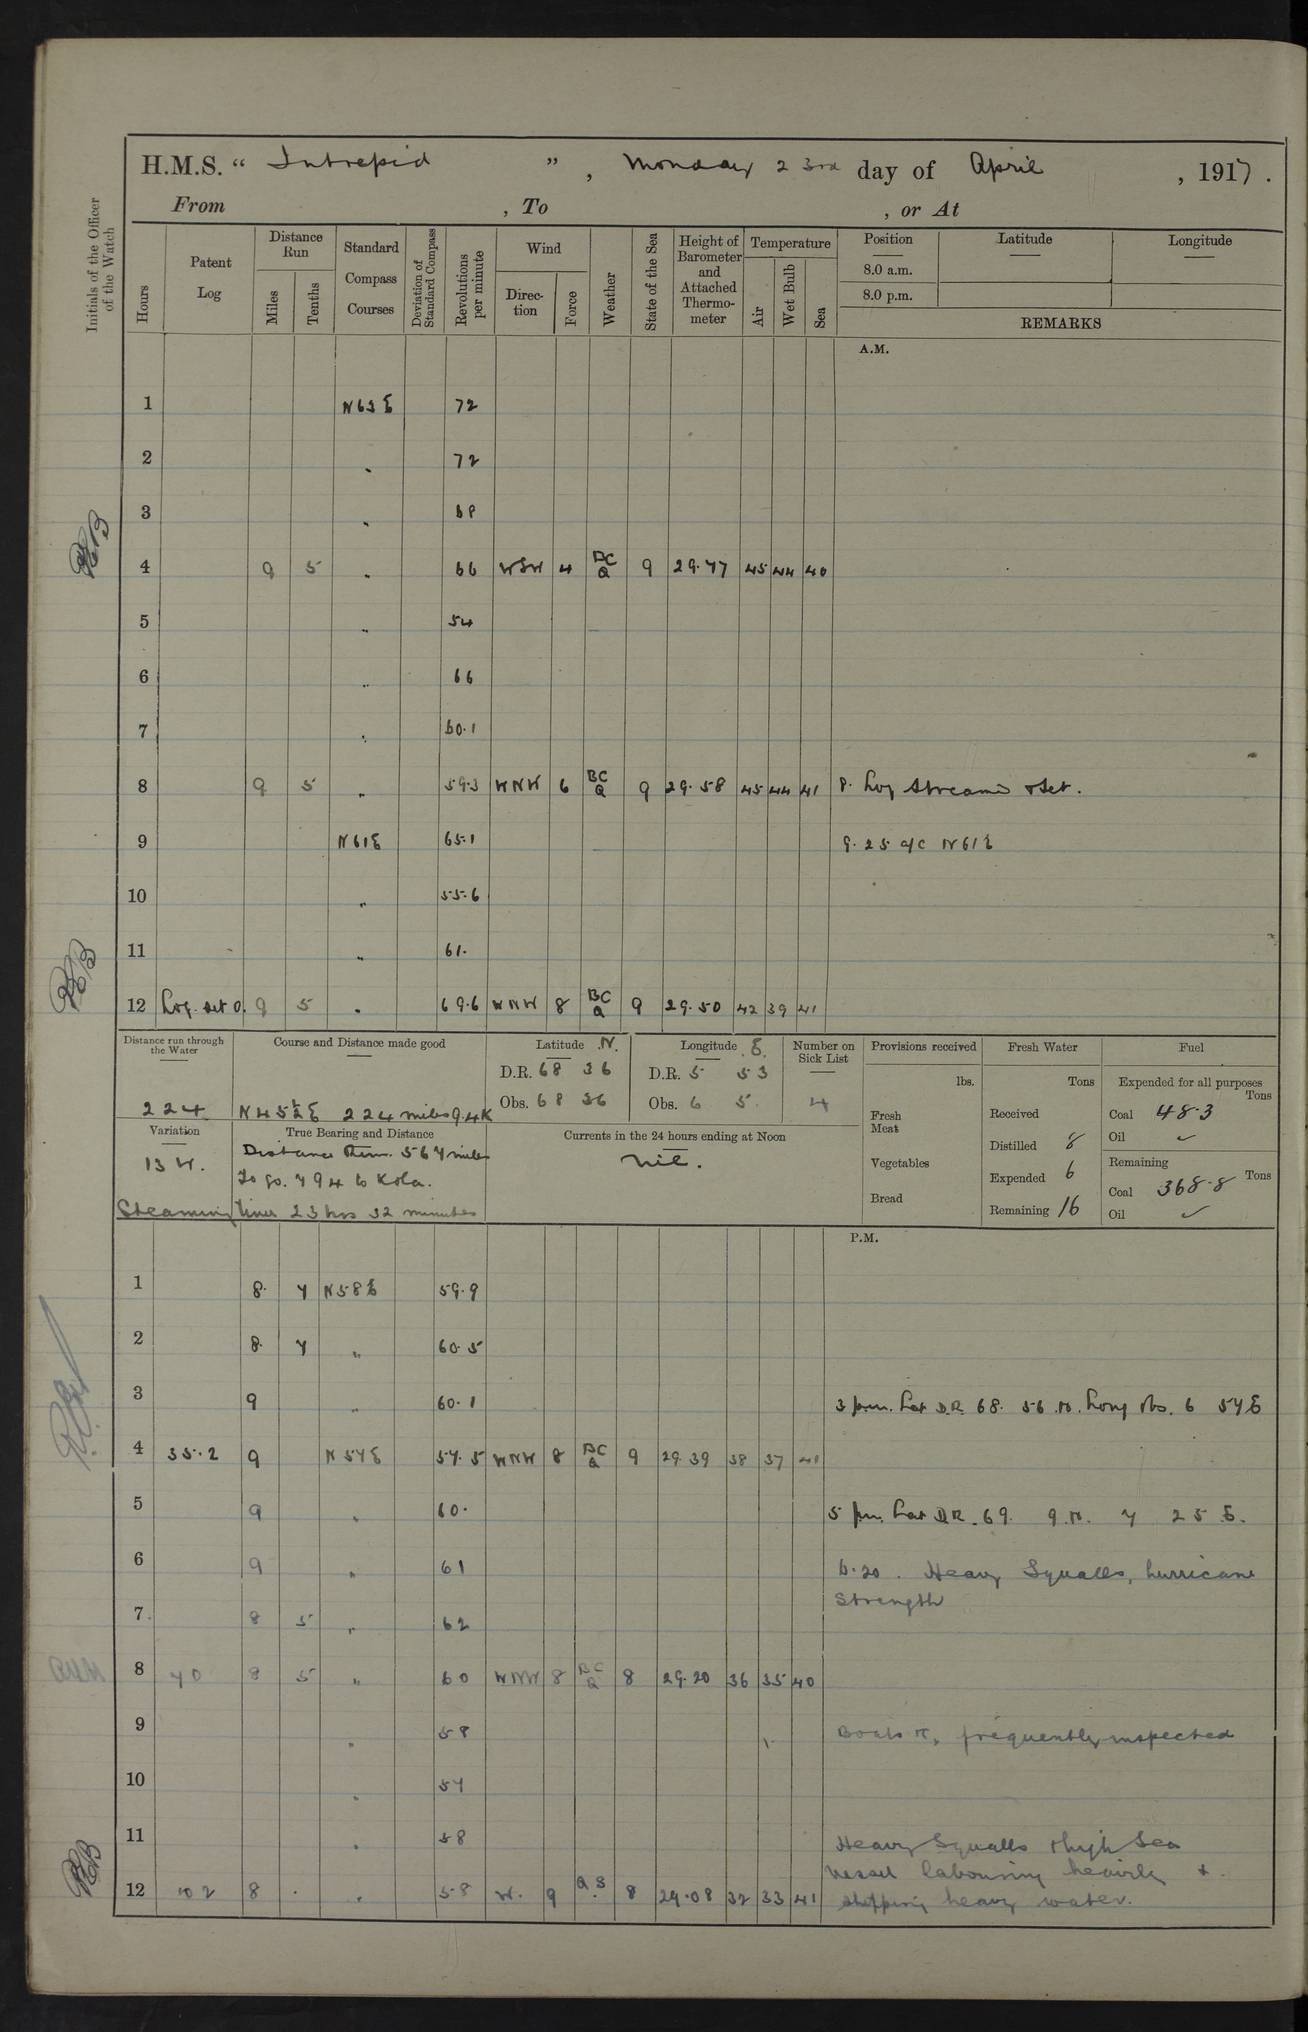 H.M.S. “ Intrepid ”, Monday 23rd day of April, 1917.
From , To , or At
Initials of the Officer of the Watch
Hours
Patent Log
Distance Run
Miles
Tenths
Standard Compass Courses
Deviation of Standard Compass
Revolutions per minute
Wind
Direction
Force
Weather
State of the Sea
Height of Barometer and Attached Thermometer
Temperature
Air
Wet Bulb
Sea
Position
Latitude
Longitude
8.0 a.m.
8.0 p.m.
REMARKS
A.M.
1 N63E 72
2 " 72
3 " 68
4 9 5 " 66 WSW 4 BC Q 9 29.77 45 44 40
5 " 54
6 " 66
7 " 60.1
8 9 5 " 59.3 WNW 6 BC Q 9 29.58 45 44 41 8. Log Streamed & Set.
9 N61E 65.1 9.25 a/c N61E
10 " 55.6
11 " 61.
12 Log. set 0. 9 5 " 69.6 WNW 8 BC Q 9 29.50 42 39 41
Distance run through the Water
224
Course and Distance made good
N45½E 224 miles 9.4K
Latitude N.
D.R. 68 36
Obs. 68 36
Longitude E.
D.R. 5 53
Obs. 6 5
Number on Sick List
4
Provisions received
lbs.
Fresh Meat
Vegetables
Bread
Fresh Water
Tons
Received
Distilled 8
Expended 6
Remaining 16
Fuel
Expended for all purposes
Tons
Coal 48.3
Oil ✓
Remaining
Tons
Coal 368.8
Oil ✓
Variation
13 W.
True Bearing and Distance
Distance 567 miles
To go. 794 to Kola.
Steaming time 23 hrs 32 minutes
Currents in the 24 hours ending at Noon
Nil.
P.M.
1 8. 7 N58E 59.9
2 8. 7 " 60.5
3 9 " 60.1 3 p.m. Lat D.R. 68. 56.N. Long Obs. 6 57E
4 35.2 9 N57E 57.5 WNW 8 BC Q 9 29.39 38 37 41
5 9 " 60. 5 pm. Lat DR. 69. 9.N. 7 25 E.
6 9 " 61 6.20. Heavy Squalls, hurricane
Strength
7 8 5 " 62
8 70 8 5 " 60 WNW 8 BC Q 8 29.20 36 35 40
9 " 58 Boats &c, frequently inspected
10 " 57
11 " 58 Heavy Squalls & high Sea
Vessel labouring heavily &
12 102 8 . " 58 W. 9 Q.S 8 29.08 32 33 41 shipping heavy water.